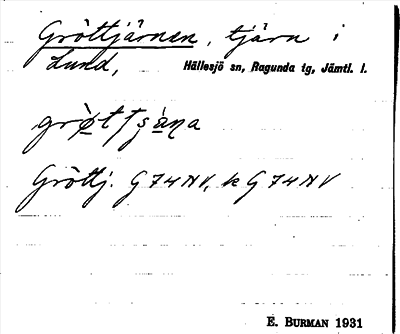 Gröttjärnen, tjärn i
Lund, Hällesjö sn, Ragunda tg, Jämtl. l.
Gröttj. G 74 NV, k G 74 NV
E. BURMAN 1931